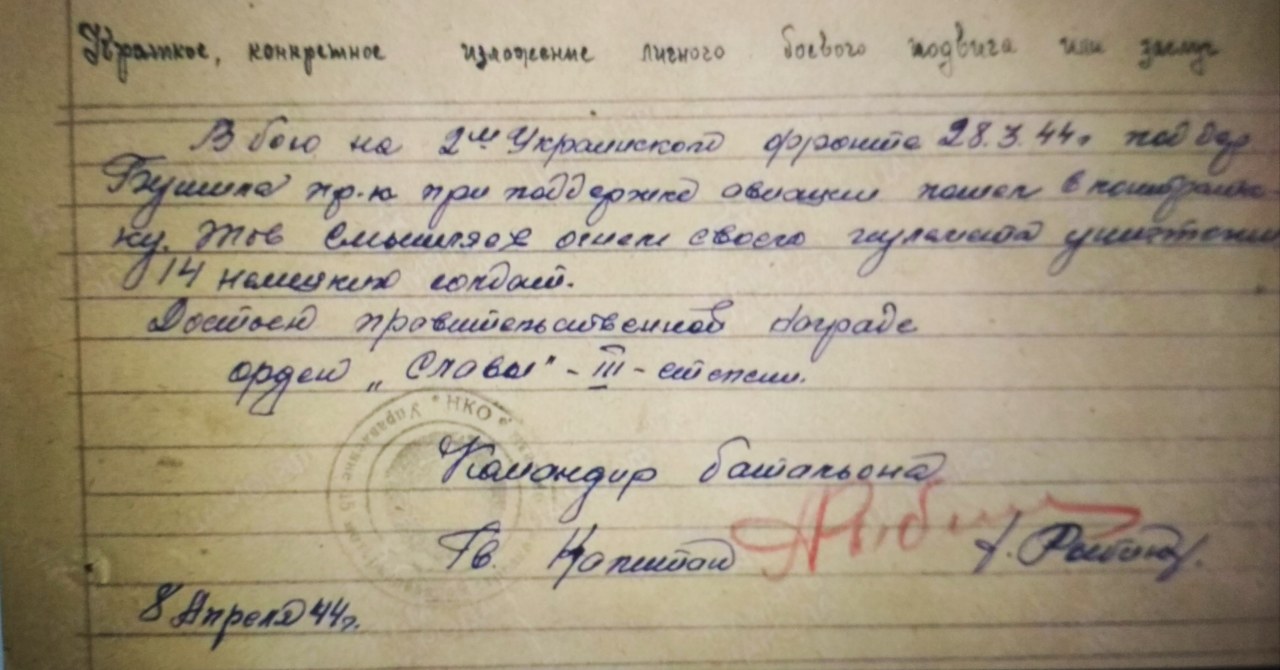 Краткое, конкретное изложение личного боевого подвига или заслуг
В бою на 2м Украинского фронта 28.3.44г. под дер
пр-к при поддержке авиации пошел в контратак-
ку. Тов огнем своего пулемета уничтожил
14 немецких солдат.
Достоен правительственной награде
орден „Славы" - III - степени.
НКО
Командир батальона
Гв. Капитан
8 Апреля 44г.